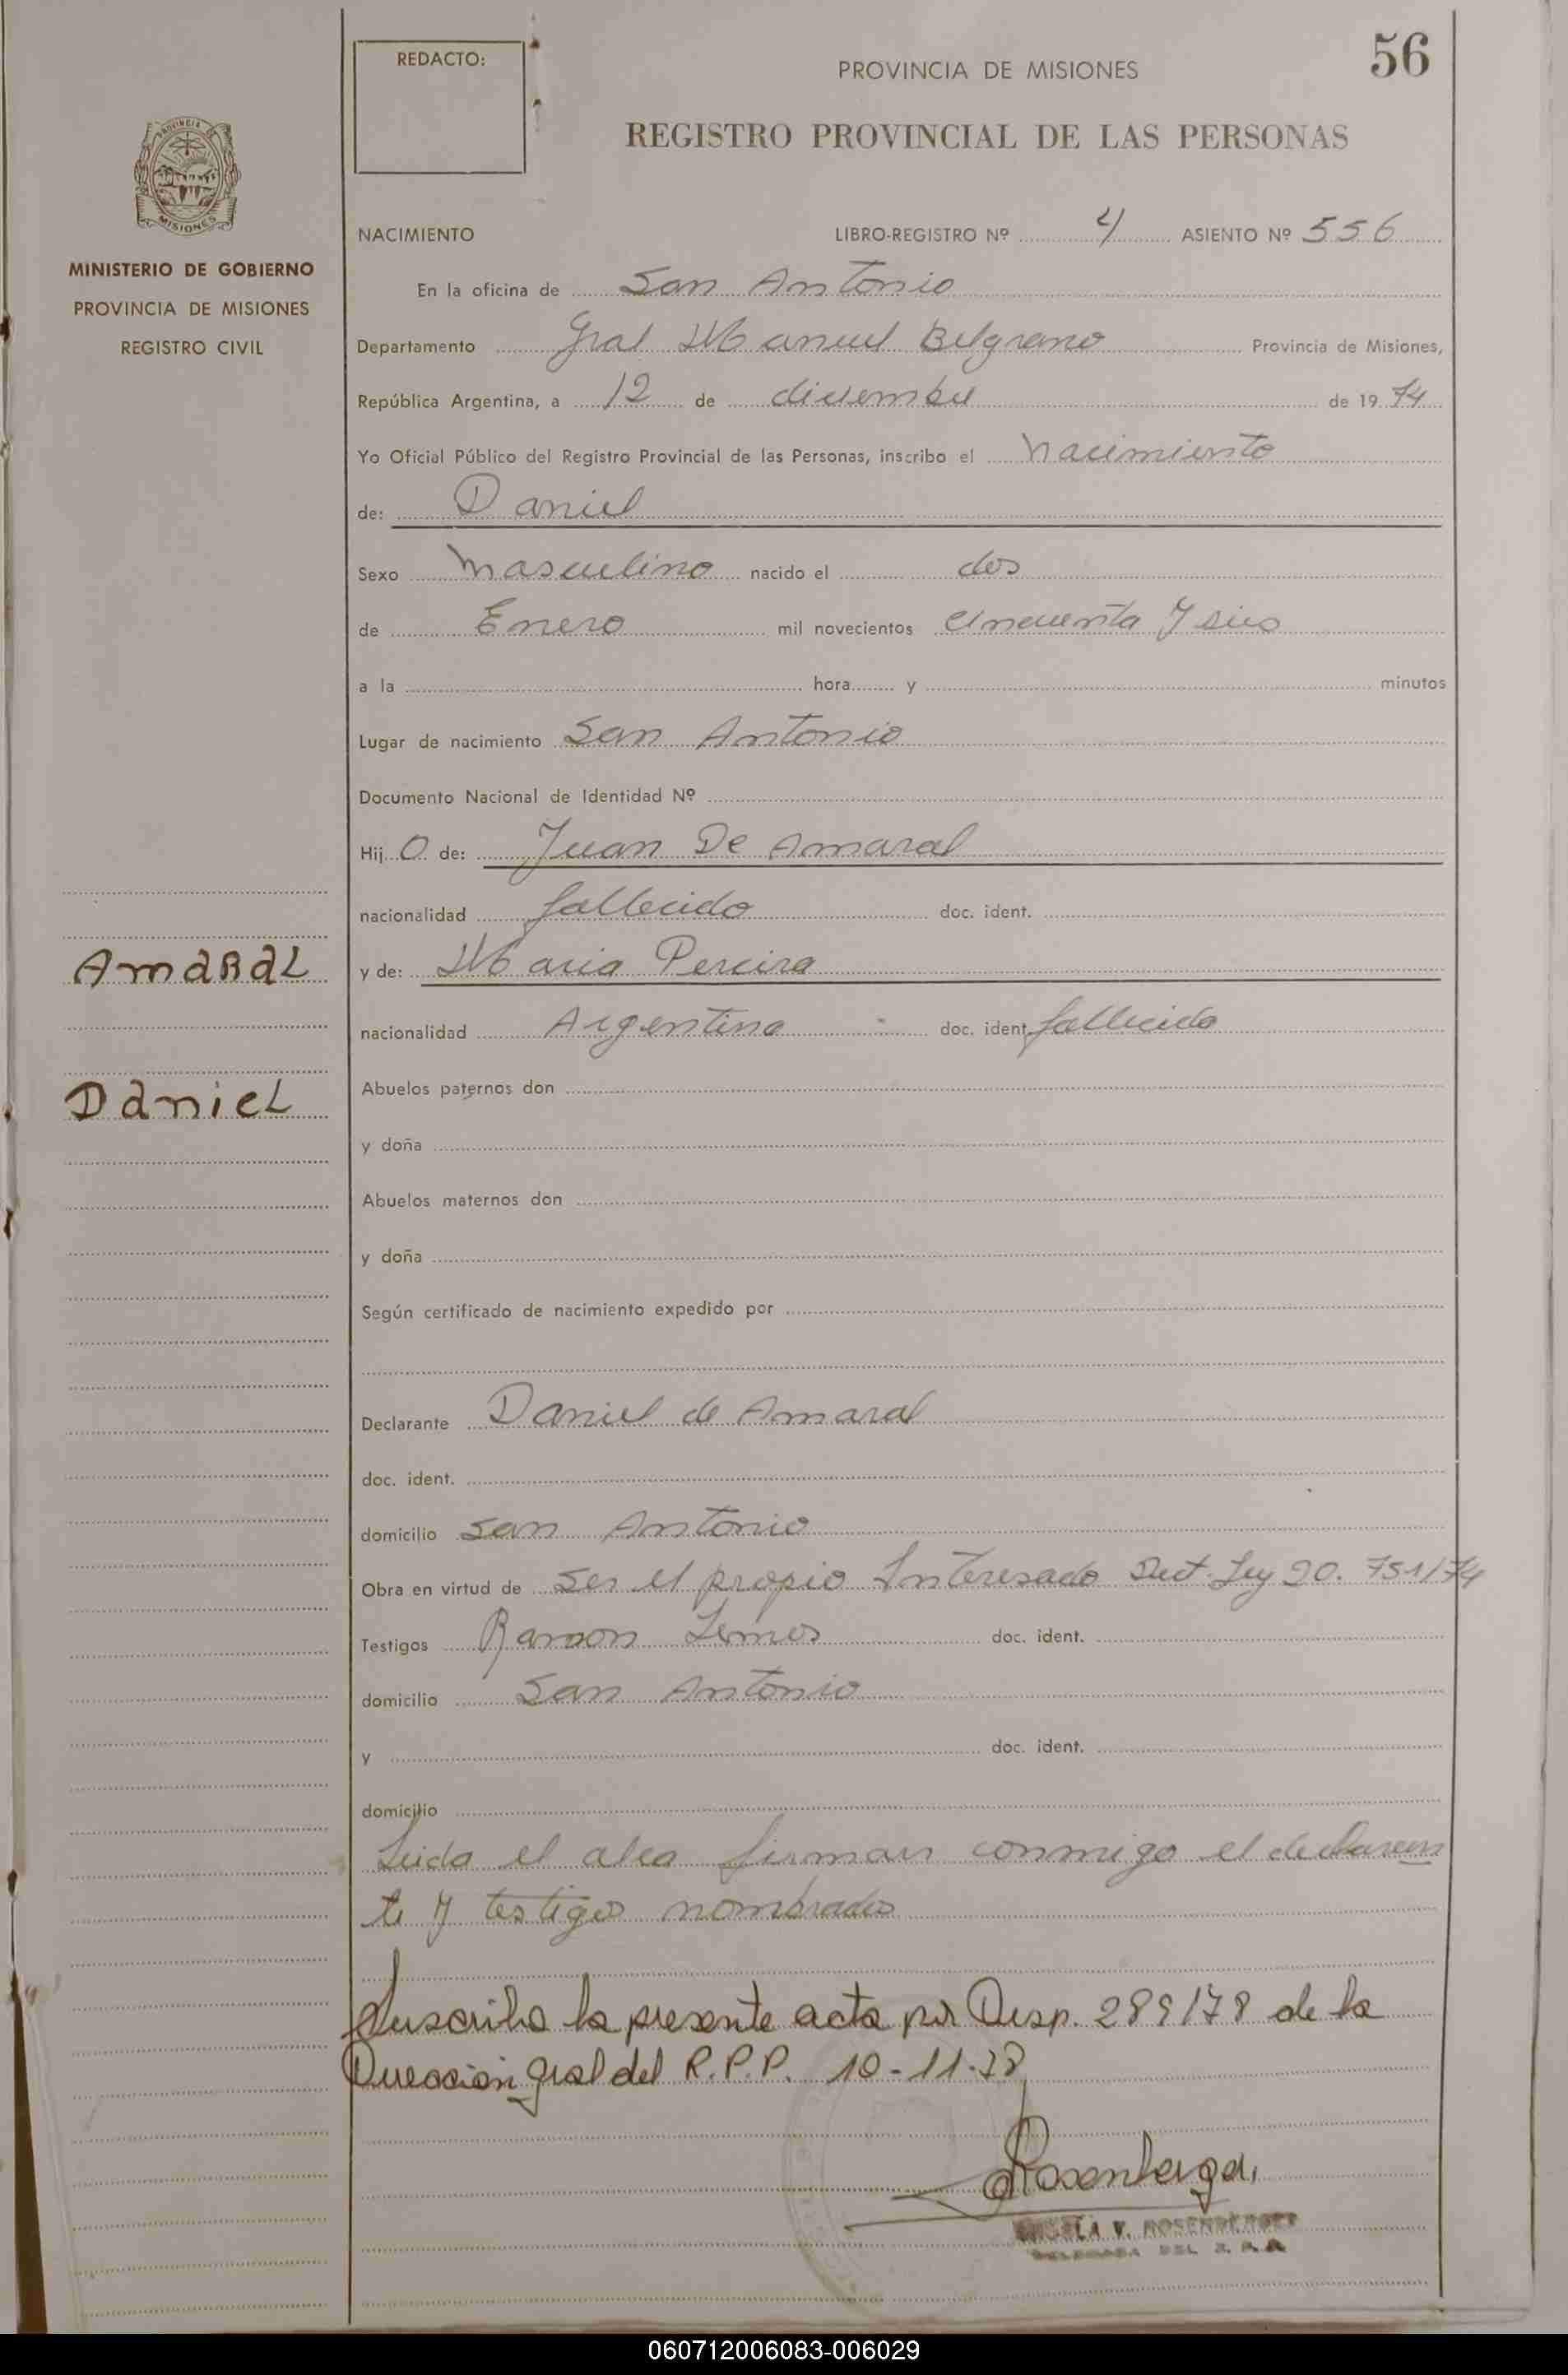 56
REDACTO:
PROVINCIA DE MISIONES
REGISTRO PROVINCIAL DE LAS PERSONAS
PROVINCIA DE
MISIONES
MINISTERIO DE GOBIERNO
PROVINCIA DE MISIONES
REGISTRO CIVIL
NACIMIENTO LIBRO-REGISTRO Nº 4 ASIENTO Nº 556
En la oficina de San Antonio
Departamento Gral Manuel Belgrano Provincia de Misiones,
República Argentina, a 12 de diciembre de 19 74
Yo Oficial Público del Registro Provincial de las Personas, inscribo el nacimiento
de: Daniel
Sexo masculino nacido el dos
de Enero mil novecientos cincuenta y seis
a la hora y minutos
Lugar de nacimiento San Antonio
Documento Nacional de Identidad Nº
Hij O de: Juan De Amaral
nacionalidad fallecido doc. ident.
Amaral
y de: Maria Pereira
nacionalidad Argentina doc. ident. fallecido
Abuelos paternos don
Daniel
y doña
Abuelos maternos don
y doña
Según certificado de nacimiento expedido por
Declarante Daniel de Amaral
doc. ident.
domicilio San Antonio
Obra en virtud de ser el propio Interesado Dect. Ley 20. 751/74
Testigos Ramon Lemos doc. ident.
domicilio San Antonio
y doc. ident.
domicilio
Leida el acta firman conmigo el declaran
te y testigos nombrados
Suscribo la presente acta por Disp. 289/78 de la
Dirección Gral del R.P.P. 10-11-78
Rosenberger
V. ROSENBERGER
DELEGADA DEL R. P. P.
060712006083-006029